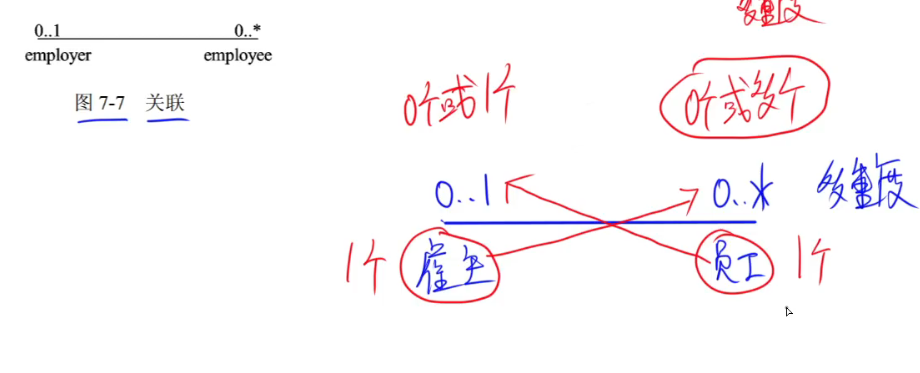 多重度
0..1 0..*
employer employee
图 7-7 关联
0个或1个 0个或多个
0..1 0..* 多重度
1个 雇主 员工 1个